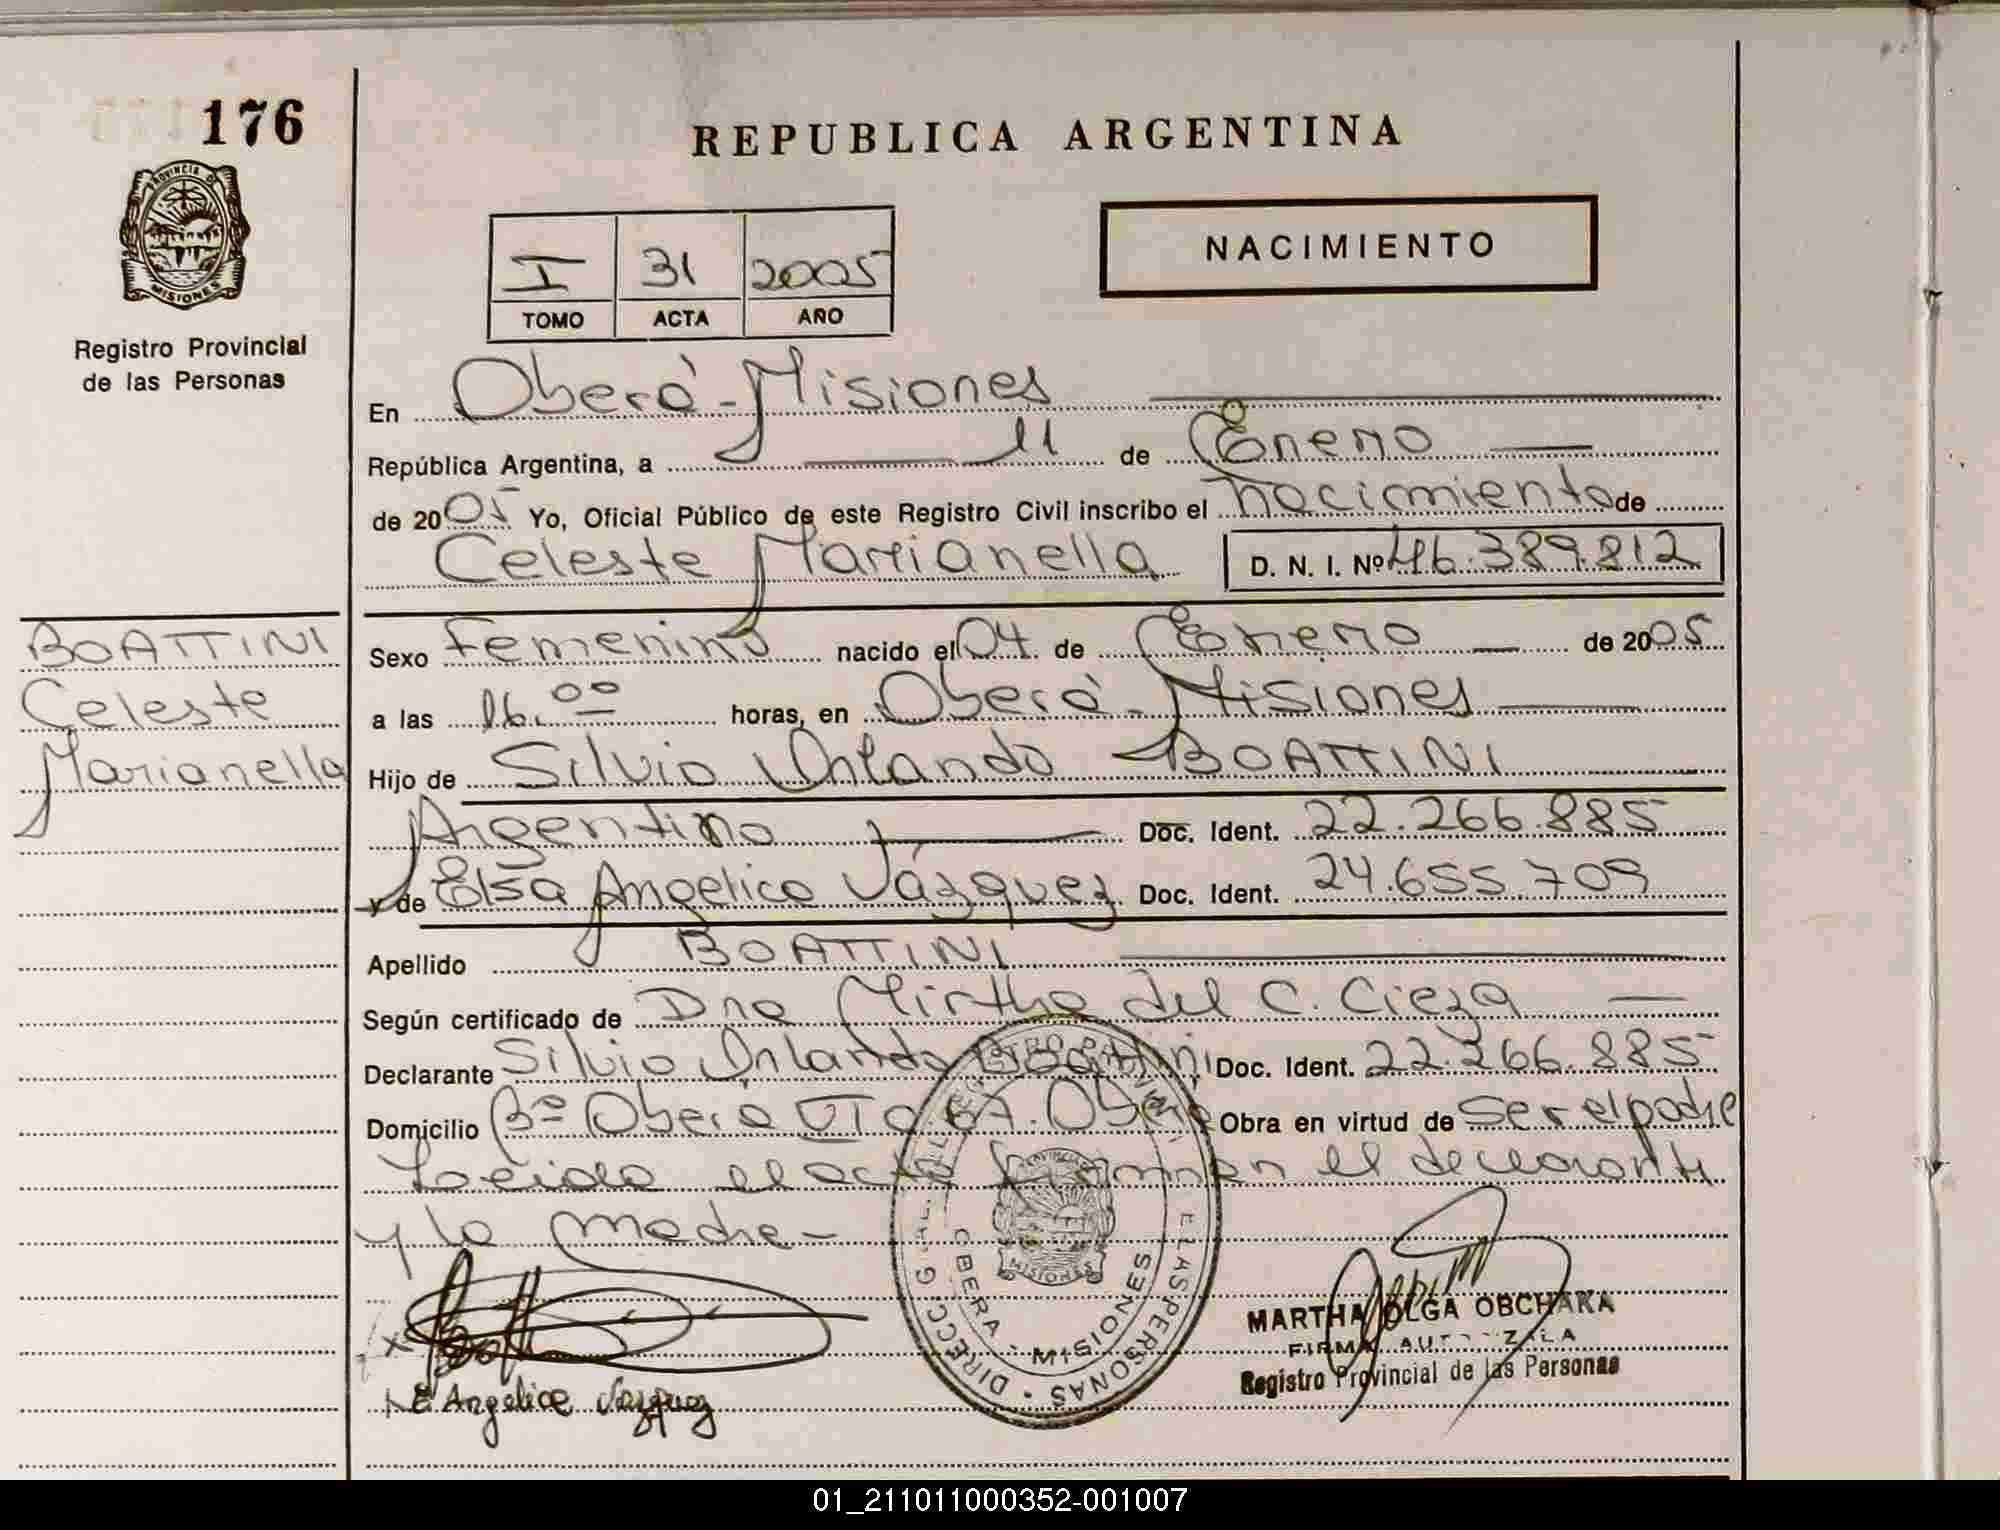 176
PROVINCIA DE
MISIONES
Registro Provincial
de las Personas
REPUBLICA ARGENTINA
NACIMIENTO
I 31 2005
TOMO ACTA AÑO
En Oberá - Misiones
República Argentina, a 11 de Enero
de 2005 Yo, Oficial Público de este Registro Civil inscribo el nacimiento de
Celeste Marianella D. N. I. Nº 46.389.812
BOATTINI
Celeste
Marianella
Sexo Femenino nacido el 04 de Enero de 2005
a las 16.00 horas, en Oberá - Misiones
Hijo de Silvio Orlando BOATTINI
Argentino Doc. Ident. 22.266.885
y de Elsa Angelica Vázquez Doc. Ident. 24.655.709
Apellido BOATTINI
Según certificado de Dra Mirtha del C. Cieza
Declarante Silvio Orlando Boattini Doc. Ident. 22.266.885
Domicilio Bº Oberá Obra en virtud de ser el padre
Leida el acta firman el declarante
y la madre -
X
E Angelica Vazquez
DIRECC GRAL. DEL REGISTRO PROVINCIAL DE LAS PERSONAS
OBERA - MISIONES
PROVINCIA
MISIONES
MARTHA OLGA OBCHAKA
FIRMA AUTORIZADA
Registro Provincial de las Personas
01_211011000352-001007